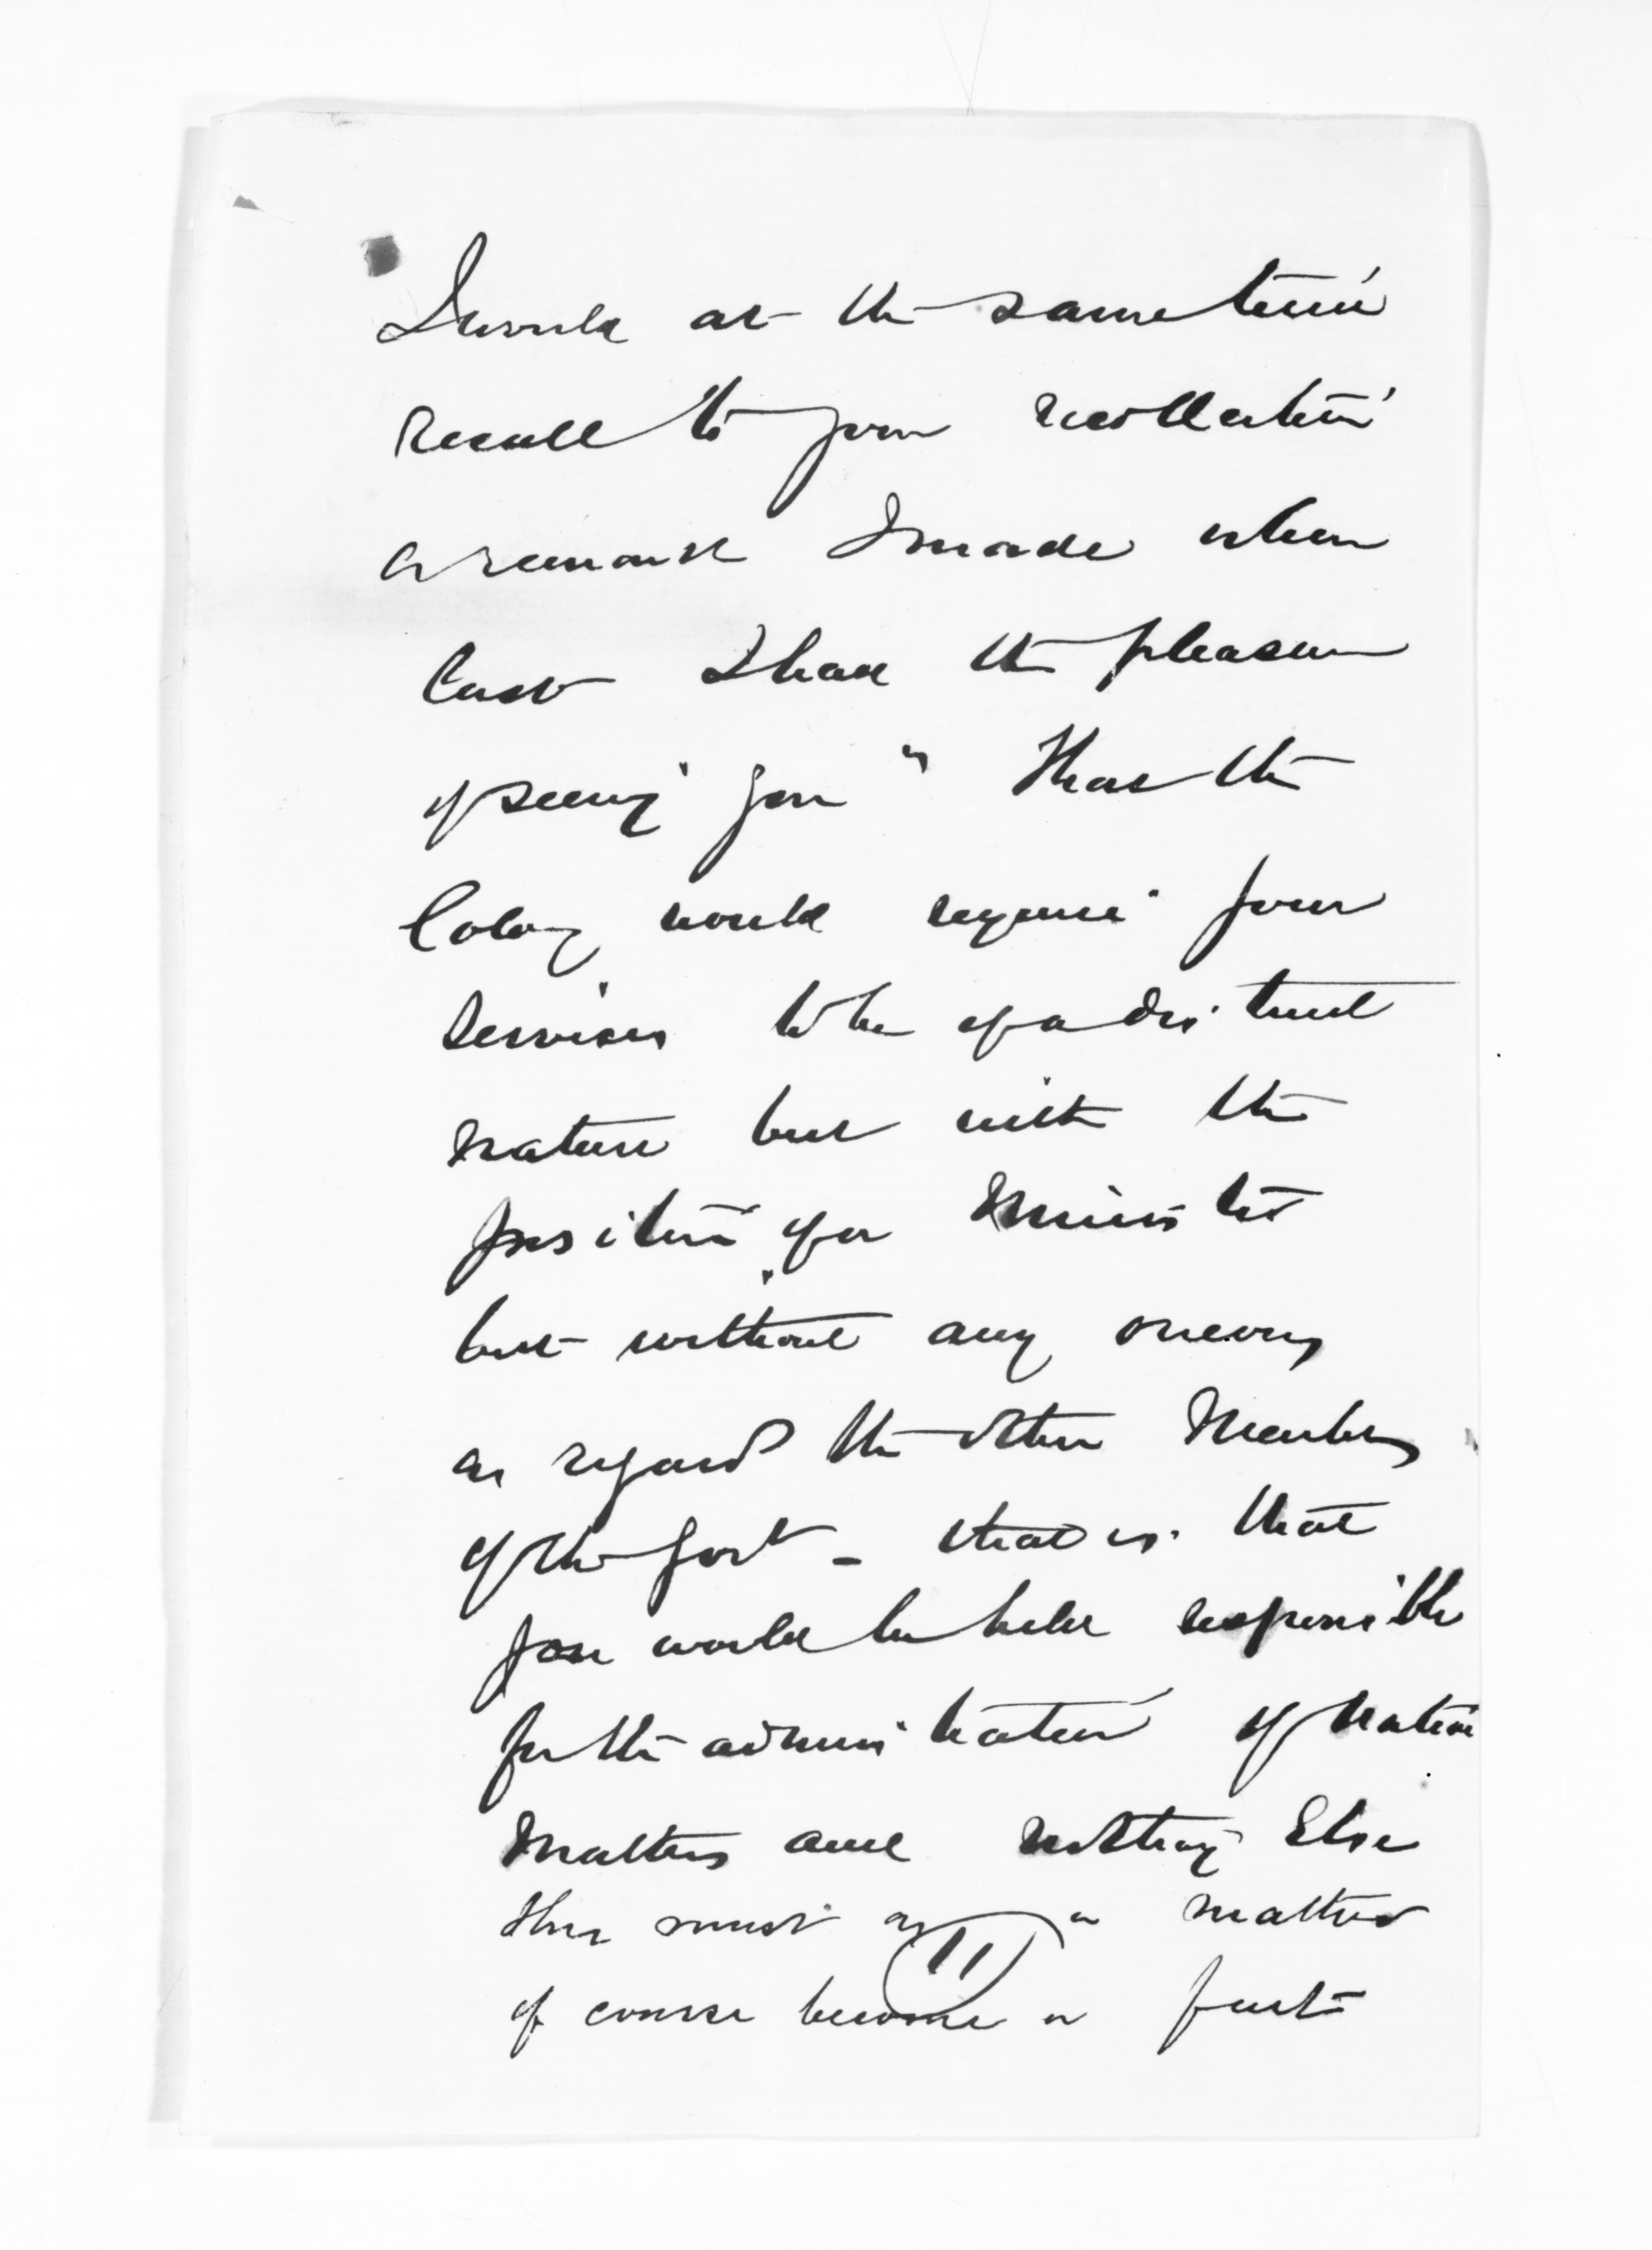 I would at the same time
recall to your recollection
a remark I made when
last I had the pleasure
of seeing you " That the
Colony would require your
services to be of a distinct
nature but with the
position of a Minister
but without any
as regard the other Members
of the Govt - that is that
you would be held responsible
for the administration of Native
Matters and nothing Else
this must as a matter
11
of course become a